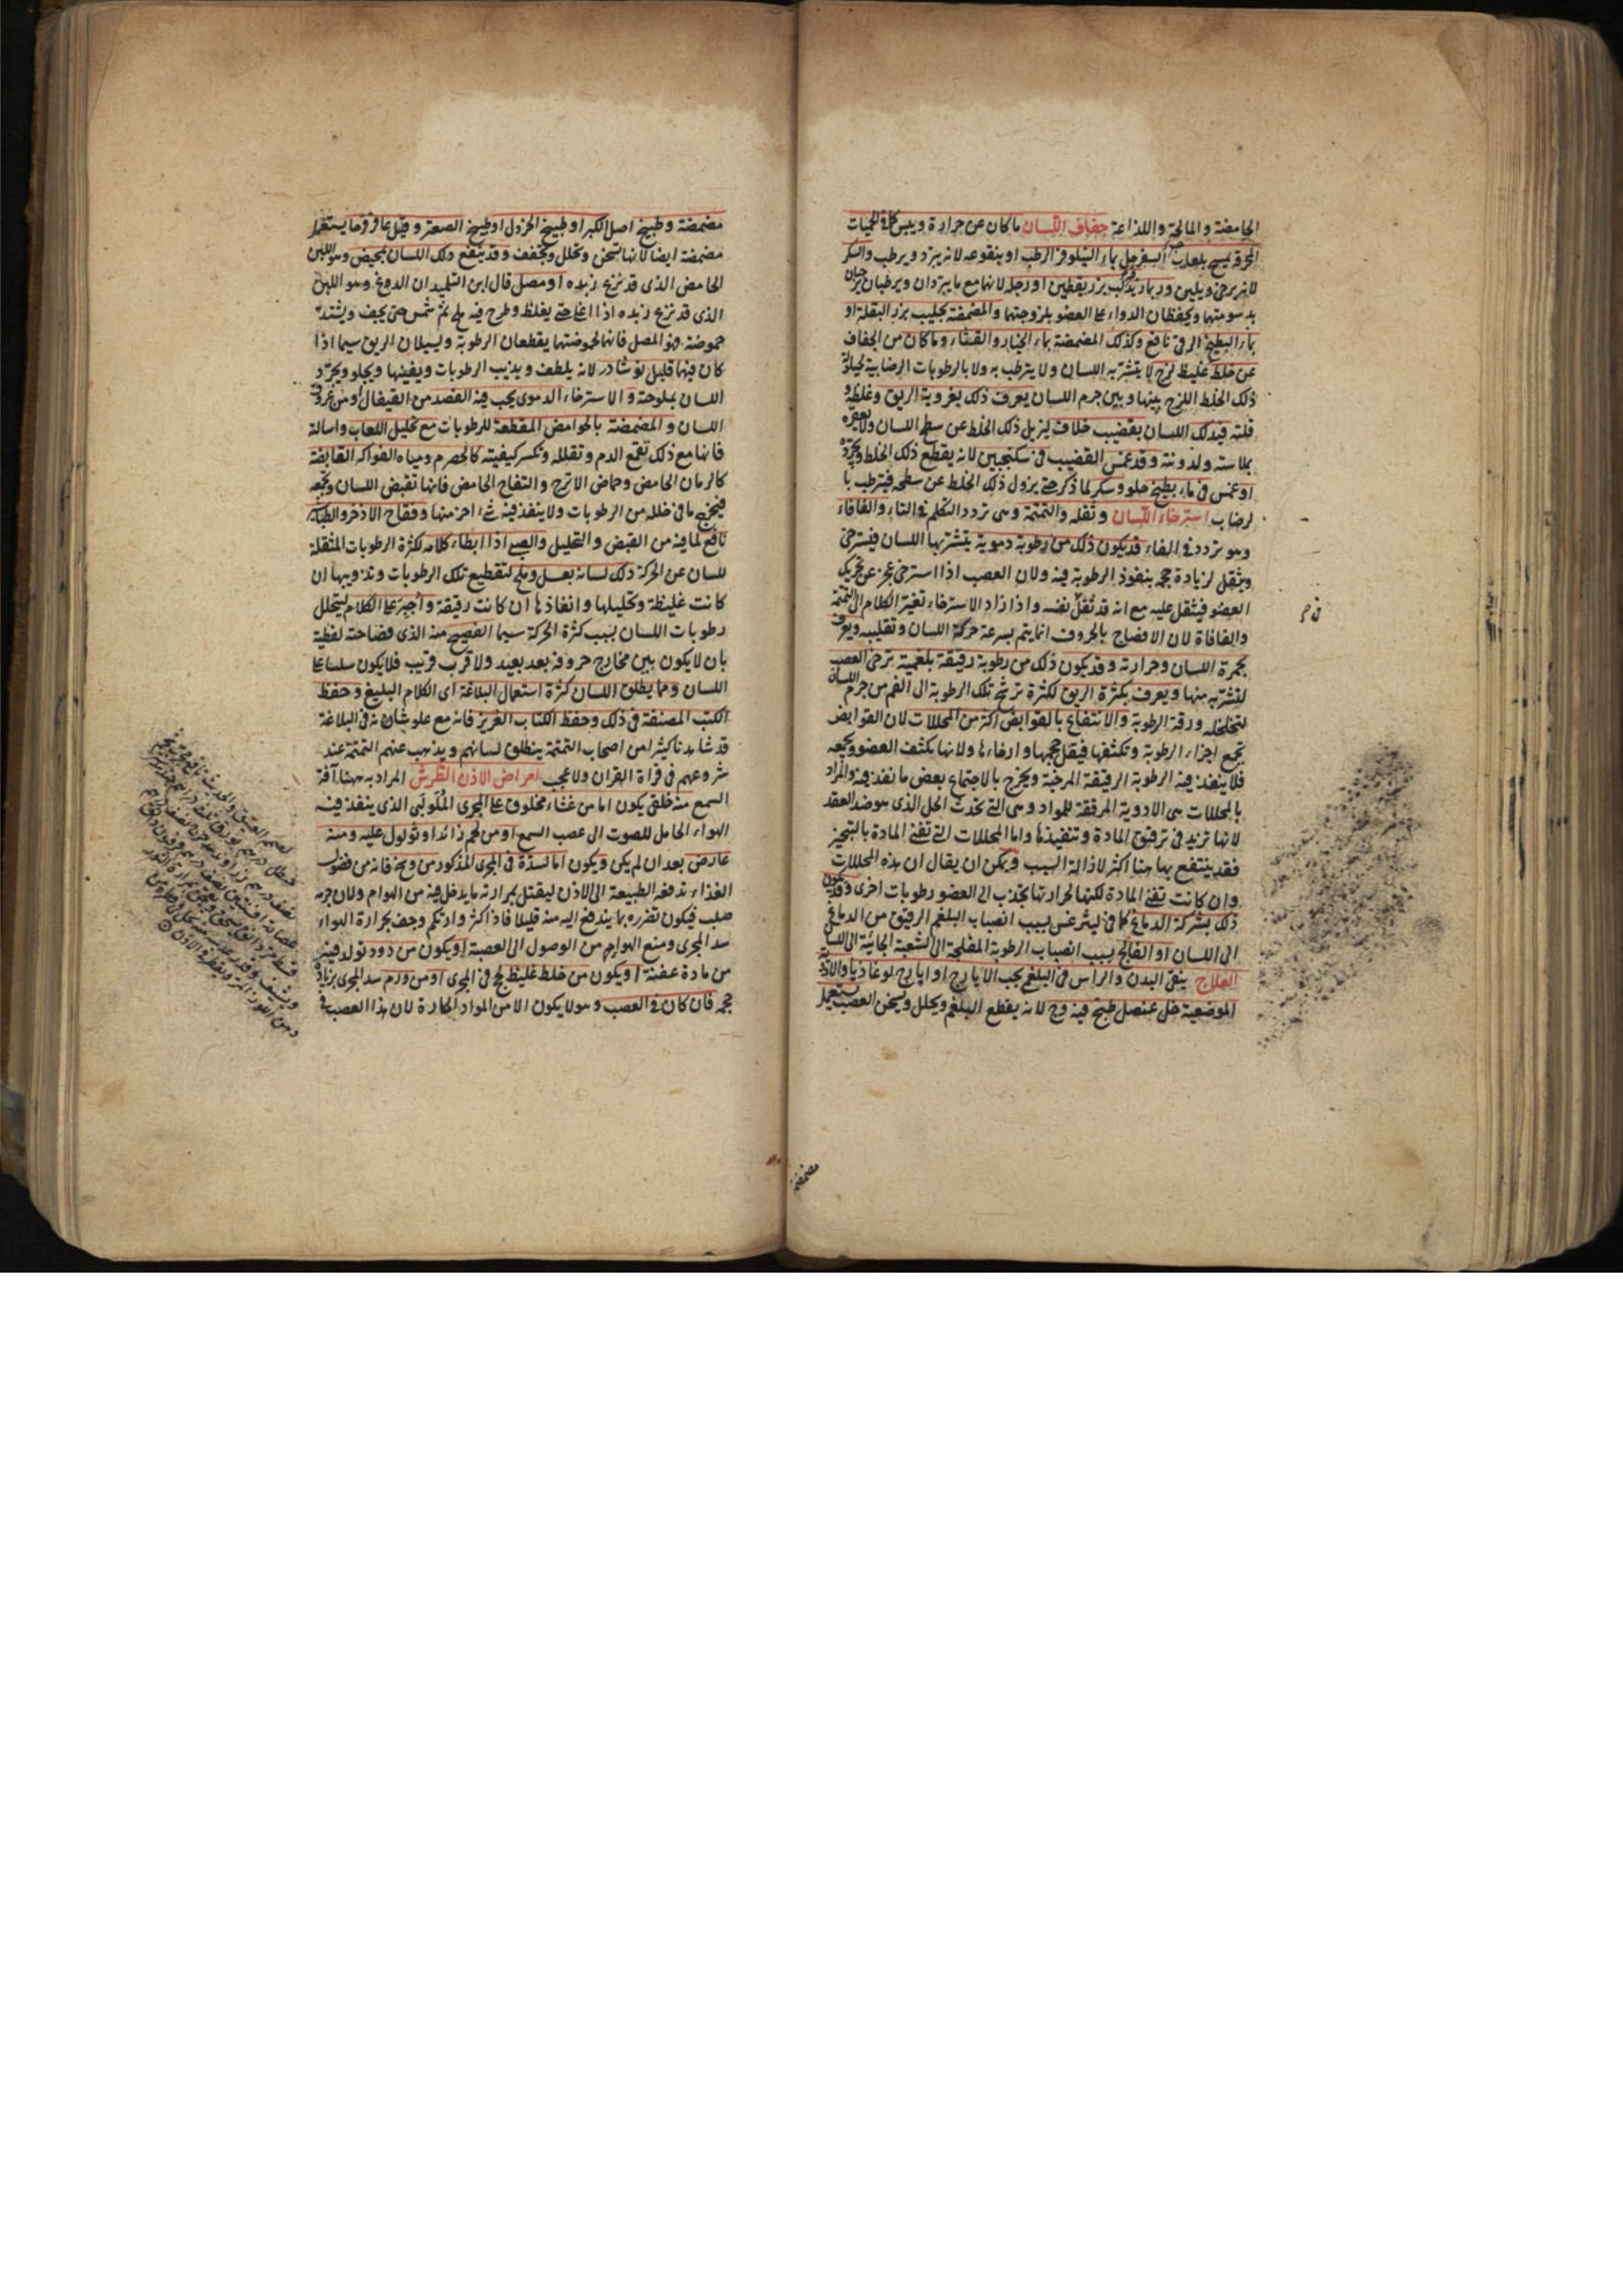 الحامضة والمالحة واللذاعة جفاف اللسان ما كان عن حرارة ويبس كما فى الحميات
المحرقة يمسح بلعاب حب السفرجل بماء النيلوفر الرطب او بنقوعه لانه يبرد ويرطب والسكر
لانه يرخى ويلين وربما زيد لب بزر يقطين او رجلة لانهما مع ما يبردان ويرطبان يرخيان
بدسومتهما ويحفظان الدواء على العضو بلزوجتهما والمضمضة بحليب بزر البقلة او
بماء البطيخ الرقى نافع وكذلك المضمضة بماء الخيار والقثاء وما كان من الجفاف
عن خلط غليظ لزج لا يتشربه اللسان ولا يترطب به ولا بالرطوبات الرضابية لحيلولة
ذلك الخلط اللزج بينها وبين جرم اللسان يعرف ذلك بغروية الريق وغلظه و
قلته فيدلك اللسان بقضيب خلاف ليزيل ذلك الخلط عن سطح اللسان ولا يعقره
بملاسته ولدونته وقد غمس القضيب فى سكنجبين لانه يقطع ذلك الخلط ويجرده
او غمس فى ماء بطيخ حلو وسكر لما ذكر حتى يزول ذلك الخلط عن سطحه فيترطب با
لرضاب استرخاء اللسان وثقله والتمتمة وهى تردد التكلم فى التاء والفافاء
وهو تردد فى الفاء قد يكون ذلك من رطوبة دموية يتشربها اللسان فيسترخى
ويثقل لزيادة حجمه بنفوذ الرطوبة فيه ولان العصب اذا استرخى عجز عن تحريك
العضو فيثقل عليه مع انه قد ثقل نفسه واذا زاد الاسترخاء تغير الكلام الى التمتمة
والفافاة لان الافصاح بالحروف انما يتم بسرعة حركة اللسان وتقليبه ويعرف
بحمرة اللسان وحرارته وقد يكون ذلك من رطوبة رقيقة بلغمية ترخى العصب
لتشربه منها ويعرف بكثرة الريق لكثرة ترشح تلك الرطوبة الى الفم من جرم اللسان
لتخلخله ورقة الرطوبة والانتفاع بالقوابض اكثر من المحللات لان القوابض
تجمع اجزاء الرطوبة وتكثفها فيقل حجمها وارخاءها ولانها تكثف العضو وتجمعه
فلا ينفذ فيه الرطوبة الرقيقة المرخية ويخرج بالاجتماع بعض ما نفذ فيه والمراد
بالمحللات هى الادوية المرققة للمواد وهى التى تحدث الحل الذى هو ضد العقد
لانها تزيد فى ترقيق المادة وتنفيذها واما المحللات التى تفنى المادة بالتبخير
فقد ينتفع بها هنا اكثر لازالة السبب ويمكن ان يقال ان هذه المحللات
وان كانت تفنى المادة لكنها لحرارتها تجذب الى العضو رطوبات اخرى وقد يكون
ذلك بشركة الدماغ كما فى ليثرغس بسبب انصباب البلغم الرقيق من الدماغ
الى اللسان او الفالج بسبب انصباب الرطوبة المفلجة الى الشعبة الجائية الى اللسان
العلاج ينقى البدن والراس فى البلغم بحب الايارج او ايارج لوغاذيا والادوية
الموضعية خل عنصل طبخ فيه وج لانه يقطع البلغم ويحلل ويسخن العصب يستعمل
مضمضة
مضمضة وطبيخ اصل الكبر او طبيخ الخردل او طبيخ الصعتر وقيل عاقرقرحا يستعمل
مضمضة ايضا لانها تسخن وتحلل وتجفف وقد ينفع دلك اللسان بمخيض وهو اللبن
الحامض الذى قد نزع زبده او مصل قال ابن التلميذ ان الدوغ وهو اللبن
الذى قد نزع زبده اذا اغلى حتى يغلظ وطرح فيه ملح ثم شمس حتى يجف ويشتد
حموضته هو المصل فانهما لحموضتهما يقطعان الرطوبة ويسيلان الريق سيما اذا
كان فيهما قليل نوشادر لانه يلطف ويذيب الرطوبات ويفنيها ويجلو ويجرد
اللسان بملوحته والاسترخاء الدموى يجب فيه الفصد من القيفال او من عروق
اللسان والمضمضة بالحوامض المقطعة للرطوبات مع تحليل اللعاب واسالة
فانها مع ذلك تقمع الدم وتقلله وتكسر كيفيته كالحصرم ومياه الفواكه القابضة
كالرمان الحامض وحماض الاترج والتفاح الحامض فانها تقبض اللسان وتجمعه
فيخرج ما فى خلله من الرطوبات ولا ينفذ فيه شىء اخر منها وفقاح الاذخر والطباشير
نافع لما فيه من القبض والتحليل والصبى اذا ابطاء كلامه لكثرة الرطوبات المثقلة
للسان عن الحركة دلك لسانه بعسل وملح لتقطيع تلك الرطوبات وتذويبها ان
كانت غليظة وتحليلها وانفاذها ان كانت رقيقة واجبر على الكلام ليتحلل
رطوبات اللسان بسبب كثرة الحركة سيما الفصيح منه الذى فصاحته لفظية
بان لا يكون بين مخارج حروفه بعد بعيد ولا قرب قريب فلا يكون سلسا على
اللسان ومما يطلق اللسان كثرة استعمال البلاغة اى الكلام البليغ وحفظ
الكتب المصنفة فى ذلك وحفظ الكتاب العزيز فانه مع علو شانه فى البلاغة
قد شاهدنا كثيرا من اصحاب التمتمة ينطلق لسانهم ويذهب عنهم التمتمة عند
شروعهم فى قراة القران ولا عجب امراض الاذن الطرش المراد به ههنا آفة
السمع منه خلقى يكون اما من غشاء مخلوق على المجرى الملولبى الذى ينفذ فيه
الهواء الحامل للصوت الى عصب السمع او من لحم زائد او ثولول عليه ومنه
عارض بعد ان لم يكن ويكون اما لسدة فى المجرى المذكور من وسخ فانه من فضول
الغذاء تدفعه الطبيعة الى الاذن ليقتل بمرارته ما يدخل فيه من الهوام ولان جرمه
صلب فيكون تضرره بما يندفع اليه منه قليلا فاذا كثر وارتكم وجف بحرارة الهواء
سد المجرى ومنع الهواء من الوصول الى العصبة او يكون من دود تولد فيه
من مادة عفنة او يكون من خلط غليظ لحج فى المجرى او من ورم سد المجرى بزيادة
حجمه فان كان فى العصب وهو لا يكون الا من المواد الحارة لان هذا العصب فى